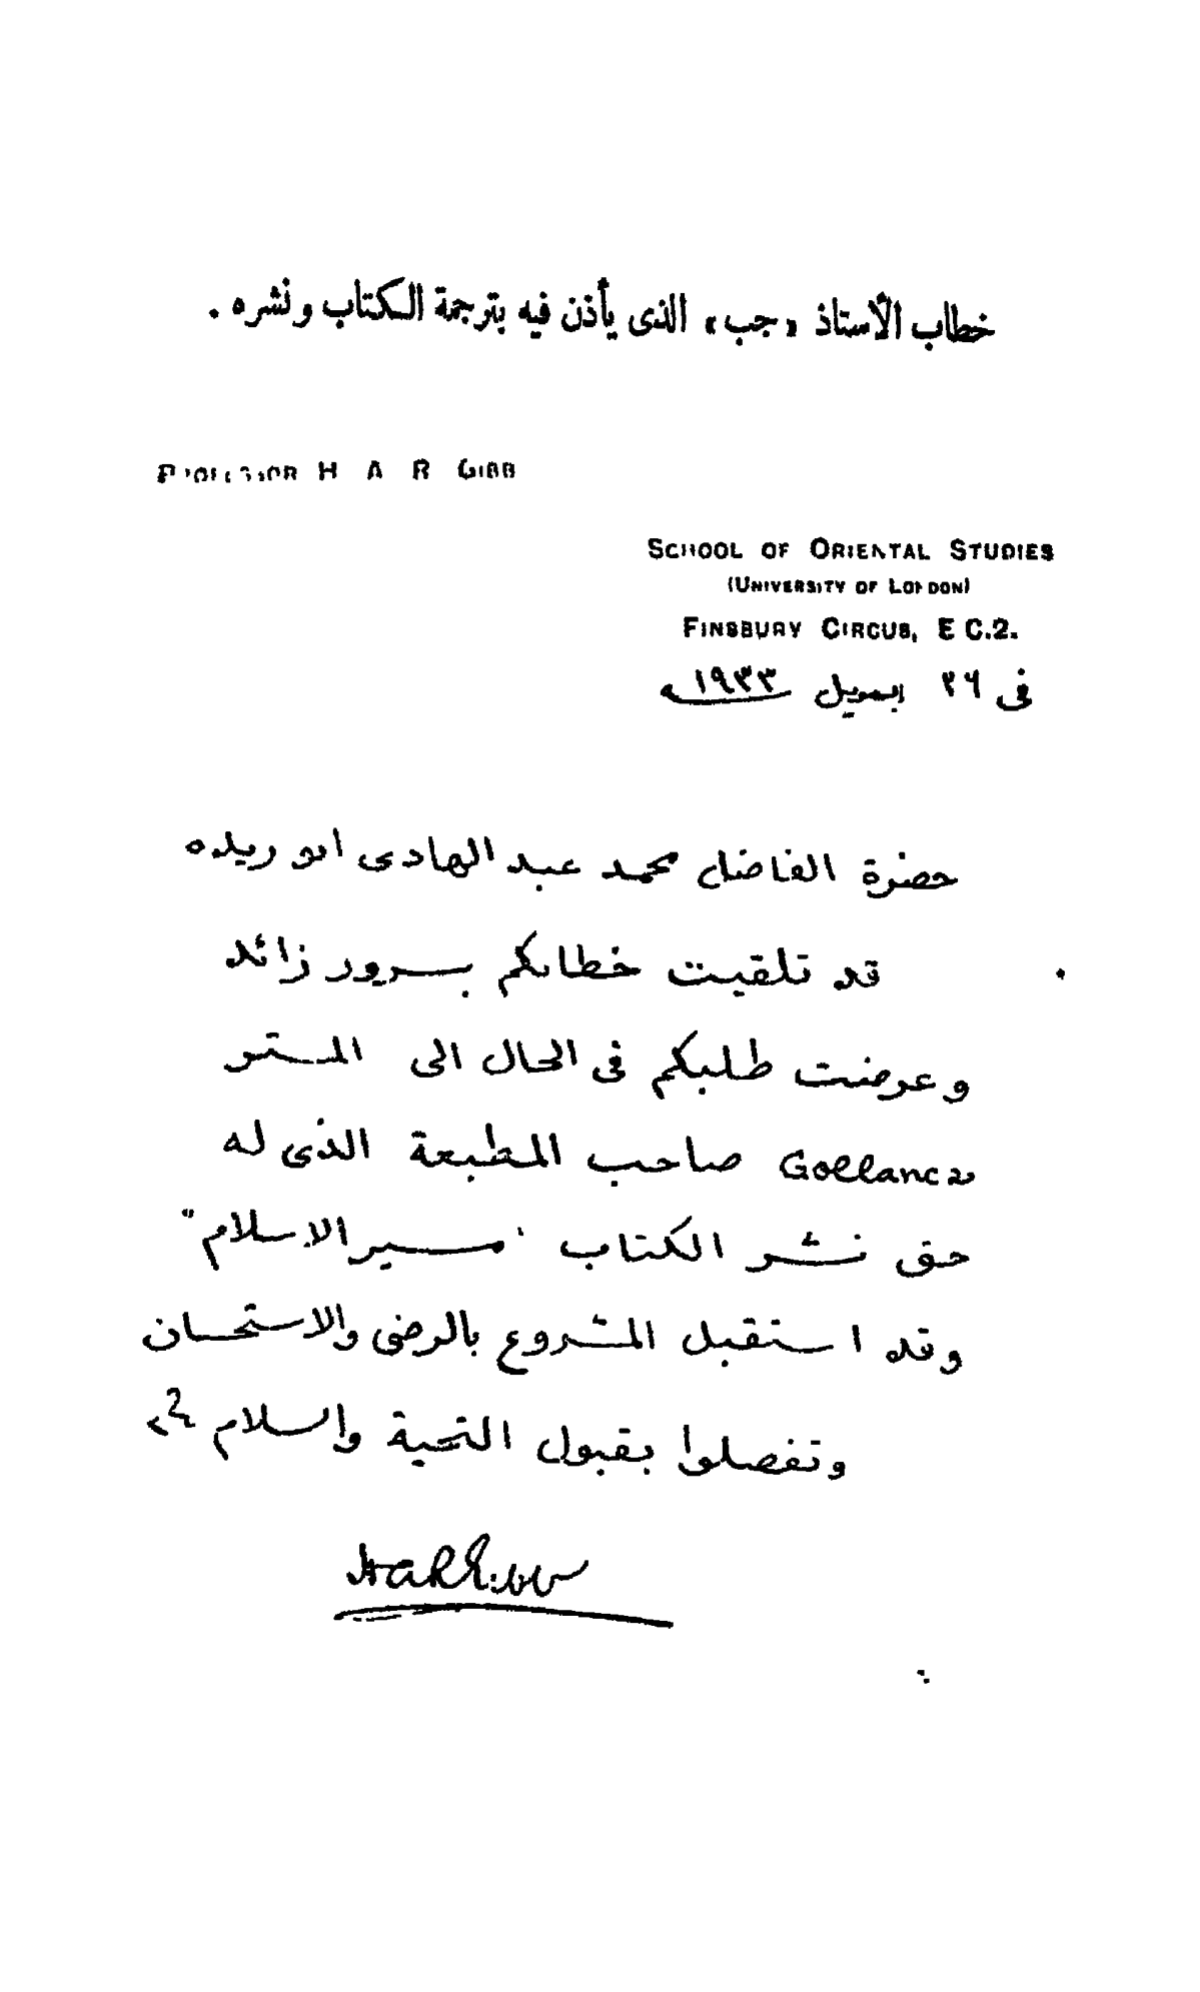 خطاب الأستاذ «جب» الذى يأذن فيه بترجمة الكتاب ونشره .
PROFESSOR H A R GIBB
SCHOOL OF ORIENTAL STUDIES
(UNIVERSITY OF LONDON)
FINSBURY CIRCUS, E C.2.
فى ٢٦ ابريل ١٩٣٣
حضرة الفاضل محمد عبد الهادى ابو ريده
قد تلقيت خطابكم بسرور زائد
وعرضت طلبكم فى الحال الى المستر
Gollancz صاحب المطبعة الذى له
حق نشر الكتاب "مسير الاسلام"
وقد استقبل المشروع بالرضى والاستحسان
وتفضلوا بقبول التحية والسلام
HAR Gibb